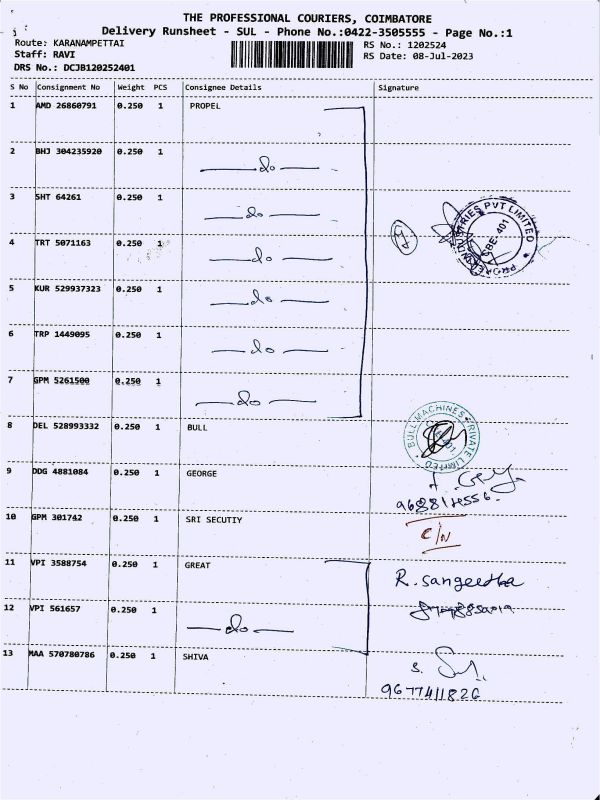 THE PROFESSIONAL COURIERS, COIMBATORE
Delivery Runsheet - SUL - Phone No.:0422-3505555 - Page No.:1
Route: KARANAMPETTAI RS No.: 1202524
Staff: RAVI RS Date: 08-Jul-2023
DRS No.: DCJB120252401
S No Consignment No Weight PCS Consignee Details Signature
1 AMD 26860791 0.250 1 PROPEL
2 BHJ 304235920 0.250 1 do
3 SHT 64261 0.250 1 do
4 TRT 5071163 0.250 1 do
5 KUR 529937323 0.250 1 do
6 TRP 1449095 0.250 1 do
7 GPM 5261500 0.250 1 do
8 DEL 528993332 0.250 1 BULL
BULL MACHINES PRIVATE LIMITED
9 DDG 4881084 0.250 1 GEORGE
10 GPM 301742 0.250 1 SRI SECUTIY C/N
11 VPI 3588754 0.250 1 GREAT R. Sangeetha
12 VPI 561657 0.250 1 do
13 MAA 570780786 0.250 1 SHIVA
9677411826